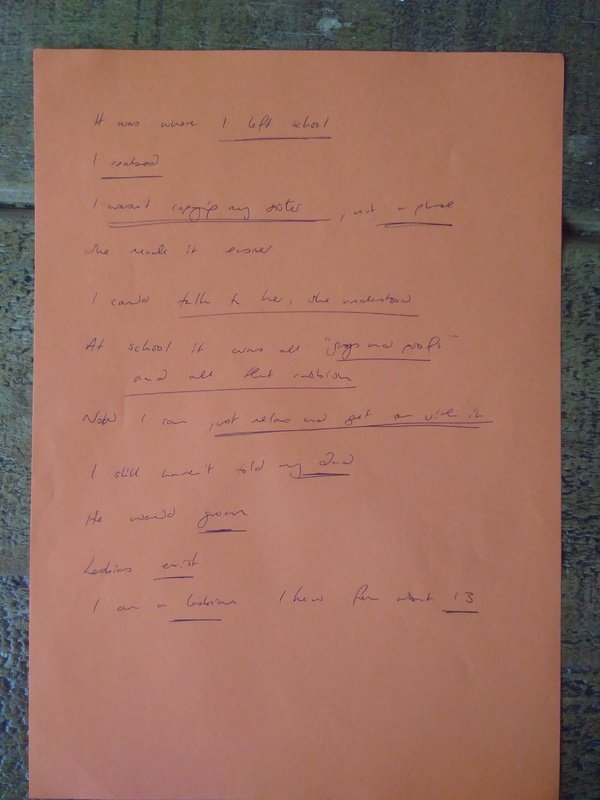 It was when I left school
I realised
I wasn't copying my sister, not a phase
She made it easier
I could talk to her, she understood
At school it was all "gays and poofs"
and all that rubbish
Now I can just relax and get on with it
I still haven't told my dad
He would groan
Lesbians exist
I am a lesbian I knew from about 13.